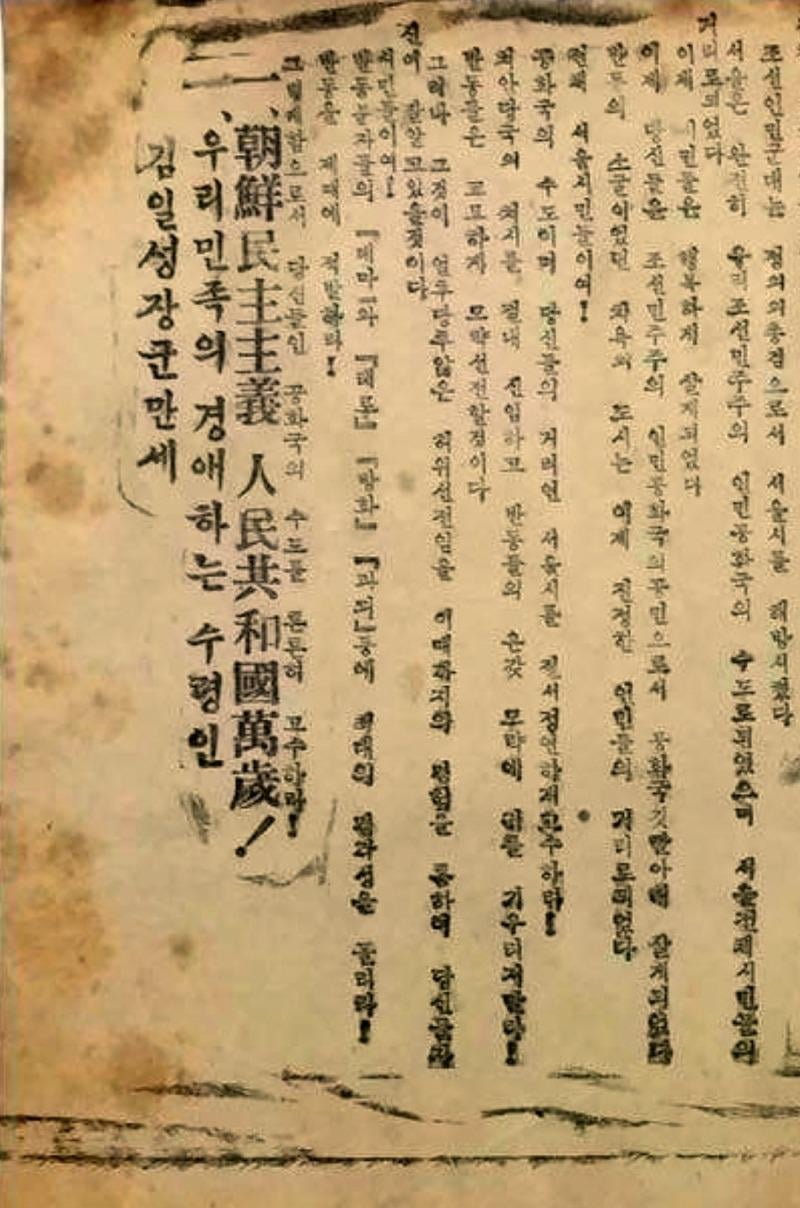 조선인민군대는 정의의총검으로서 서울시를 해방시켰다
서울은 완전히 우리조선민주주의 인민공화국의 수도로되였으며 서울전체시민들의
거리로되었다
이제 시민들은 행복하게 살게되었다
이제 당신들은 조선민주주의 인민공화국의공민으로서 공화국깃발아래 살게되었다
반동의 소굴이었던 도시는 이제 진정한 인민들의 거리로되었다
전체 서울시민들이여!
공화국의 수도이며 당신들의 거리인 서울시를 질서정연하게고수하라!
절대 신임하고 반동들의 온갖 모략에 귀를 기우리지말라!
반동들은 교묘하게 모략선전할것이다
그러나 그것이 얼투당투않은 허위선전임을 이때까지의 경험을 통하여 당신들자
신이 잘알고있을것이다
시민들이여!
반동분자들의 『테로』 『방화』 『파괴』등에 최대의 경각성을 돌리라!
반동을 제때에 적발하라!
그렇게함으로서 당신들인 공화국의 수도를 튼튼히 고수하라!
一、朝鮮民主主義 人民共和國萬歲!
二、우리민족의 경애하는 수령인
김일성장군만세